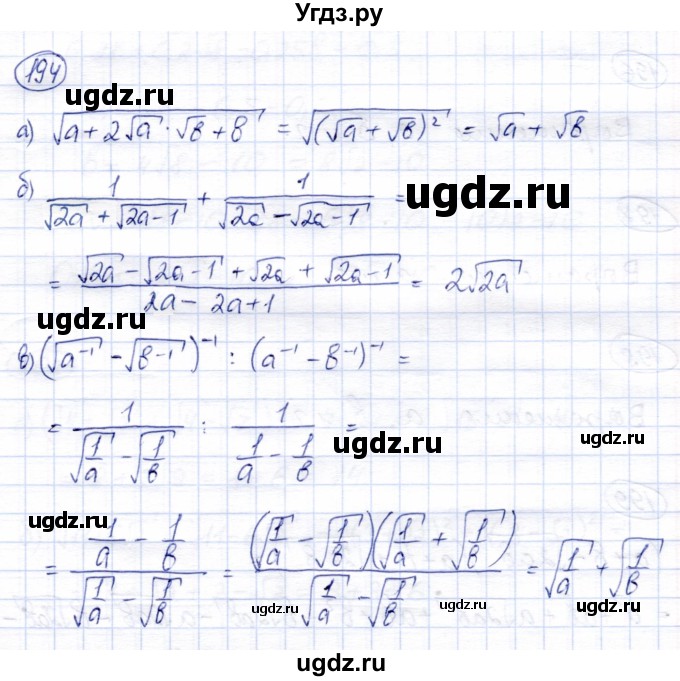 Угдз.ру
194
ugdz.ru
а) √(a + 2√a · √b + b) = √((√a + √b)²) = √a + √b
б) 1/(√2a + √(2a-1)) + 1/(√2a - √(2a-1)) =
ugdz.ru
= (√2a - √(2a-1) + √2a + √(2a-1))/(2a - 2a + 1) = 2√2a
ugdz.ru
в) (√(a⁻¹) - √(b⁻¹))⁻¹ : (a⁻¹ - b⁻¹)⁻¹ =
= 1/(√(1/a) - √(1/b)) : 1/(1/a - 1/b) =
ugdz.ru
ugdz.ru
= (1/a - 1/b)/(√(1/a) - √(1/b)) = ((√(1/a) - √(1/b))(√(1/a) + √(1/b)))/(√(1/a) - √(1/b)) = √(1/a) + √(1/b)
ugdz.ru ugdz.ru
ugdz.ru